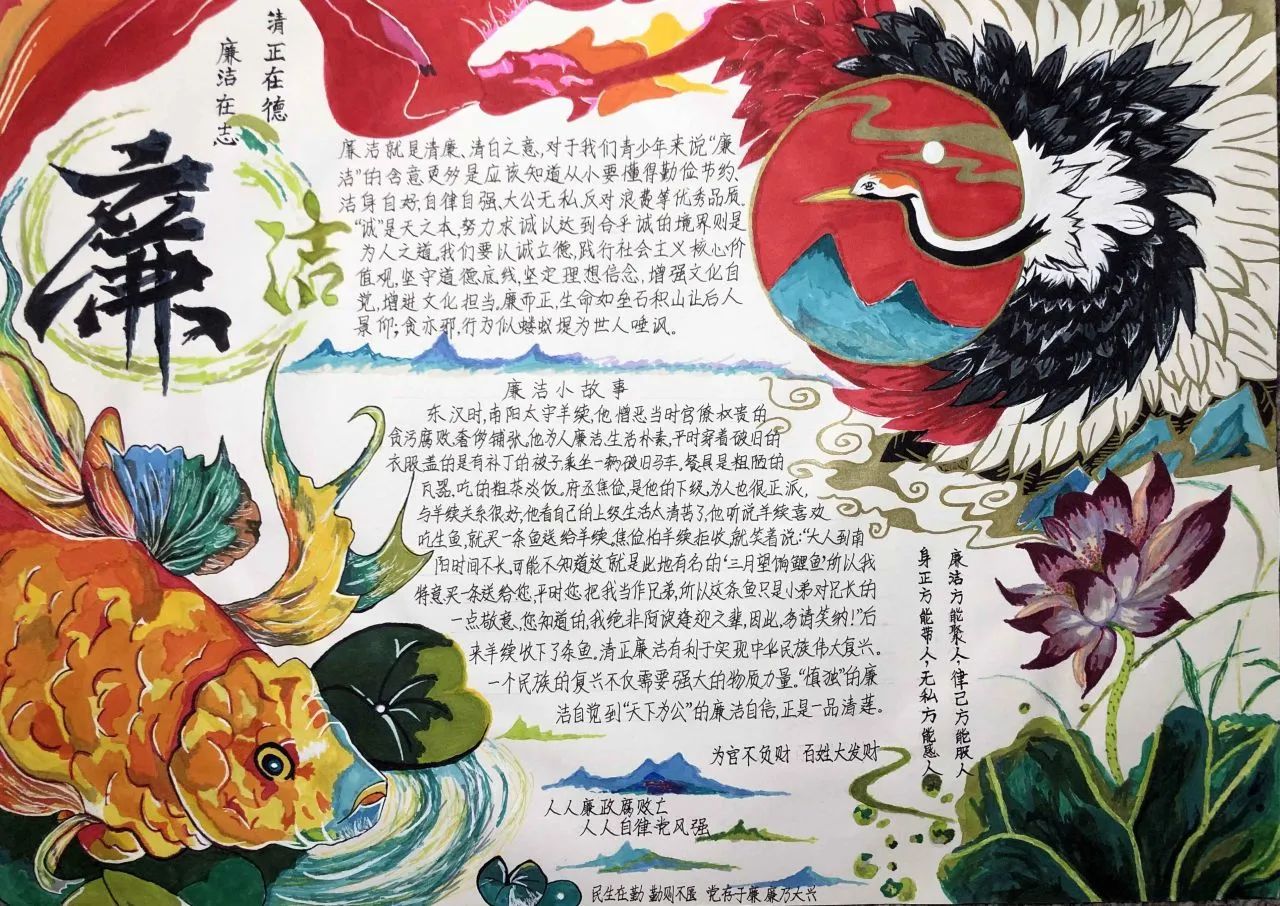 清正在德
廉洁在志
廉洁
廉洁就是清廉、清白之意,对于我们青少年来说“廉
洁”的含意更多是应该知道从小要懂得勤俭节约、
洁身自好;自律自强、大公无私、反对浪费等优秀品质。
“诚”是天之本,努力求诚以达到合乎诚的境界则是
为人之道。我们要以诚立德,践行社会主义核心价
值观,坚守道德底线,坚定理想信念,增强文化自
觉,增进文化担当。廉而正,生命如垒石积山让后人
景仰;贪亦邪,行为似蝼蚁堤为世人唾讽。
廉洁小故事
东汉时,南阳太守羊续,他憎恶当时官僚权贵的
贪污腐败,奢侈铺张,他为人廉洁,生活朴素,平时穿着破旧的
衣服,盖的是有补丁的被子,乘坐一辆破旧马车,餐具是粗陋的
瓦器,吃的粗茶淡饭。府丞焦俭,是他的下级,为人也很正派,
与羊续关系很好,他看自己的上级生活太清苦了,他听说羊续喜欢
吃生鱼,就买一条鱼送给羊续,焦俭怕羊续拒收,就笑着说:“大人到南
阳时间不长,可能不知道这就是此地有名的‘三月望饷鲤鱼’所以我
特意买一条送给您,平时您把我当作兄弟,所以这条鱼只是小弟对兄长的
一点敬意,您知道的,我绝非阿谀逢迎之辈,因此,务请笑纳!”后
来羊续收下了条鱼。清正廉洁有利于实现中华民族伟大复兴。
一个民族的复兴不仅需要强大的物质力量。“慎独”的廉
洁自觉到“天下为公”的廉洁自信,正是一品清莲。
为官不负财 百姓大发财
廉洁方能聚人,律己方能服人
身正方能带人,无私方能感人
人人廉政腐败亡
人人自律党风强
民生在勤 勤则不匮 党存于廉 廉乃大兴